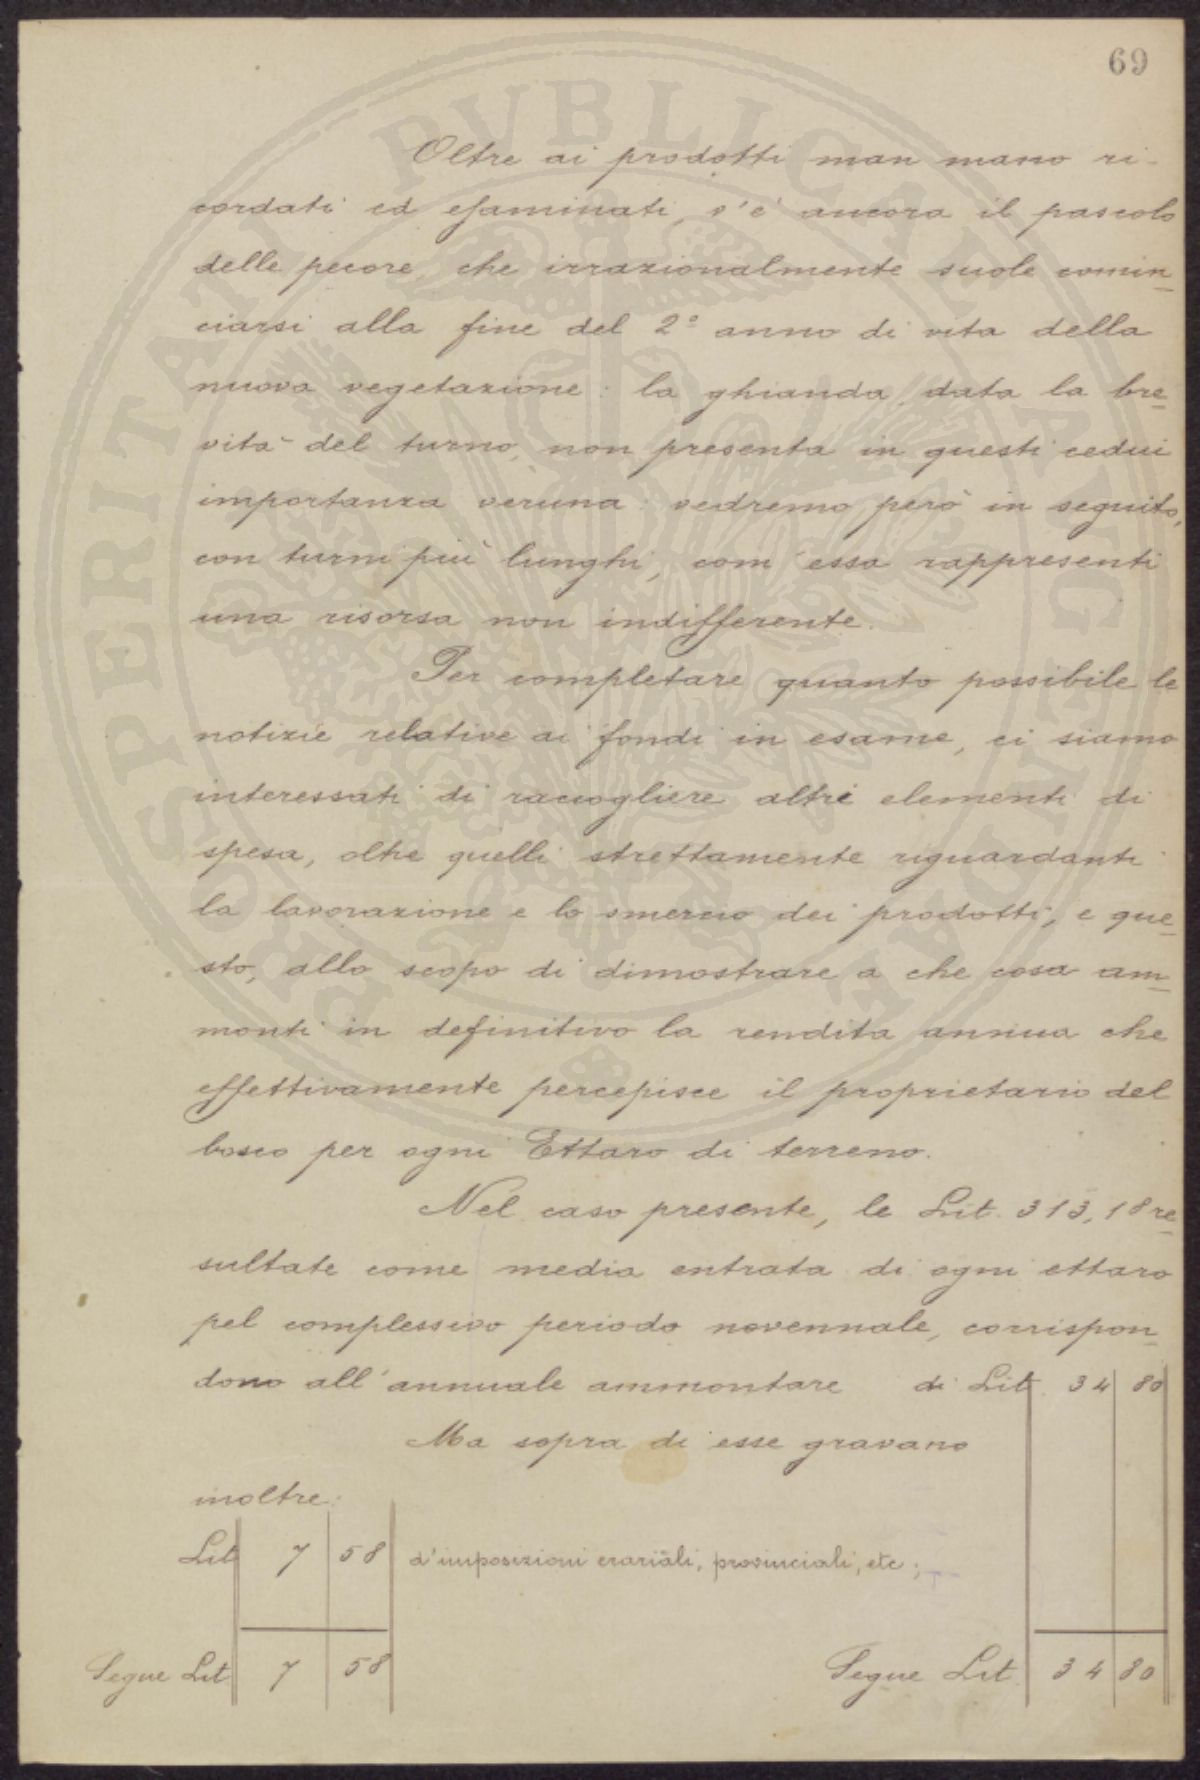 69
Oltre ai prodotti man mano ri-
cordati ed esaminati, v'è ancora il pascolo
delle pecore, che irrazionalmente suole comin-
ciarsi alla fine del 2º anno di vita della
nuova vegetazione: la ghianda, data la bre-
vità del turno, non presenta in questi cedui
importanza veruna: vedremo però in seguito,
con turni più lunghi, com'essa rappresenti
una risorsa non indifferente.
Per completare quanto possibile le
notizie relative ai fondi in esame, ci siamo
interessati di raccogliere altri elementi di
spesa, oltre quelli strettamente riguardanti
la lavorazione e lo smercio dei prodotti, e que-
sto, allo scopo di dimostrare a che cosa am-
monti in definitivo la rendita annua che
effettivamente percepisce il proprietario del
bosco per ogni Ettaro di terreno.
Nel caso presente, le Lit. 313,18 re-
sultate come media entrata di ogni ettaro
pel complessivo periodo novennale, corrispon-
dono all'annuale ammontare di Lit. 34 80
Ma sopra di esse gravano
inoltre:
Lit 7 58 d'imposizioni erariali, provinciali, etc;
Segue Lit 7 58 Segue Lit. 34 80
PROSPERITATI PUBLICAE AUGENDAE